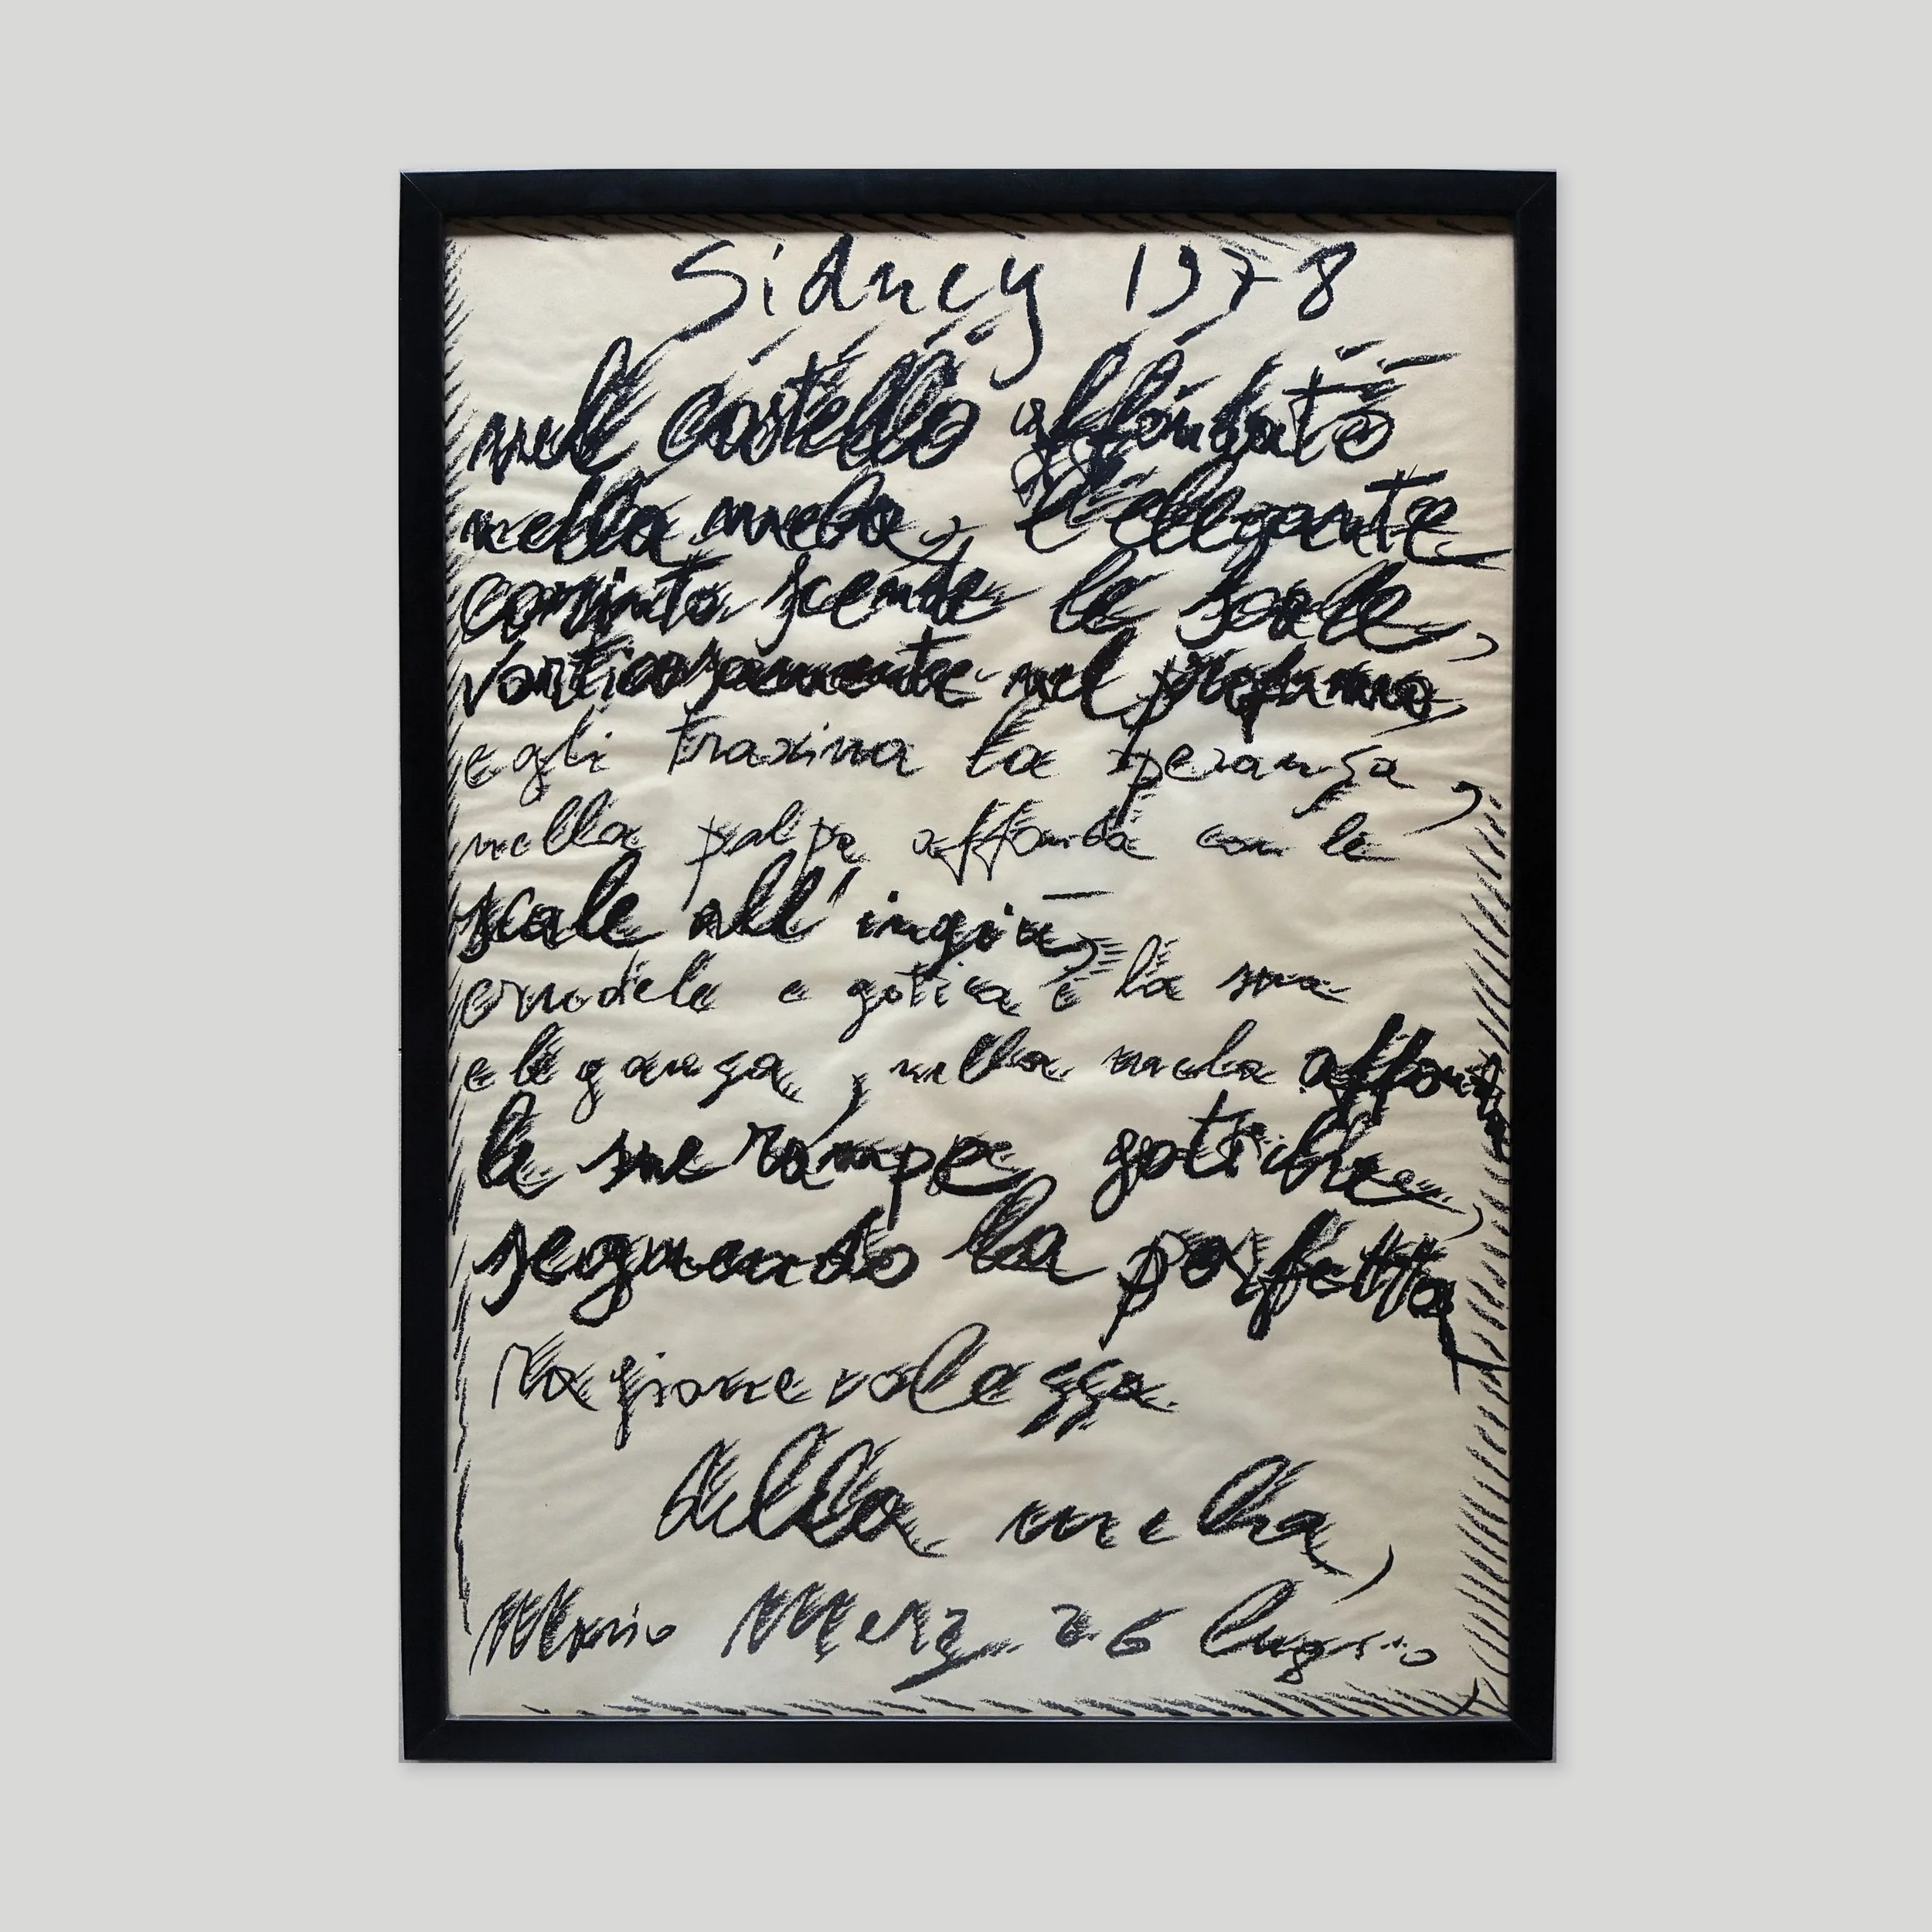 Sidney 1978
nel castello affondato
nella mela, l'elegante
corinto scende le scale,
vorticosamente nel profumo,
egli trascina la speranza,
nella polpa affonda con le
scale all'ingiù,
crudele e gotica è la sua
eleganza, nella mela affonda
le sue rampe gotiche,
seguendo la perfetta
ragionevolezza
della mela,
Mario Merz 26 luglio